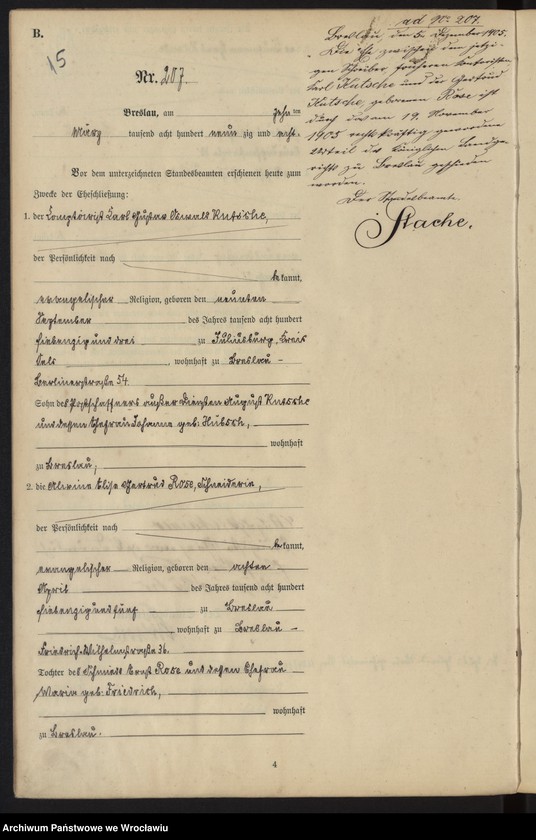 B.
15
Nr. 207.
ad No 207.
Breslau, den 5. Dezember 1905.
Die Ehe zwischen dem jetzi-
gen Schreiber, früheren Kontoristen
Carl Kutsche und der Gertrud
Kutsche, geborenen Rose ist
durch das am 19. November
1905 rechtskräftig gewordene
Urteil des Königlichen Landge-
richts zu Breslau geschieden
worden.
Der Standesbeamte.
Stache.
Breslau, am zehn ten
März tausend acht hundert neun zig und acht.
Vor dem unterzeichneten Standesbeamten erschienen heute zum
Zwecke der Eheschließung:
1. der Comptoirist Carl Gustav Oswald Kutsche,
der Persönlichkeit nach
be kannt,
evangelischer Religion, geboren den neunten
September des Jahres tausend acht hundert
siebenzig und drei zu Juliusburg, Kreis
Oels, wohnhaft zu Breslau -
Berlinerstraße 54.
Sohn des Postschaffners außer Diensten August Kutsche
und dessen Ehefrau Johanna geb: Hübsch,
wohnhaft
zu Breslau,
2. die Alwine Elise Gertrud Rose, Schneiderin,
der Persönlichkeit nach
be kannt,
evangelischer Religion, geboren den achten
April des Jahres tausend acht hundert
siebenzig und fünf zu Breslau
, wohnhaft zu Breslau -
Friedrich-Wilhelmstraße 36.
Tochter des Schmied Ernst Rose und dessen Ehefrau
Maria geb: Friedrich,
wohnhaft
zu Breslau.
4
Archiwum Państwowe we Wrocławiu